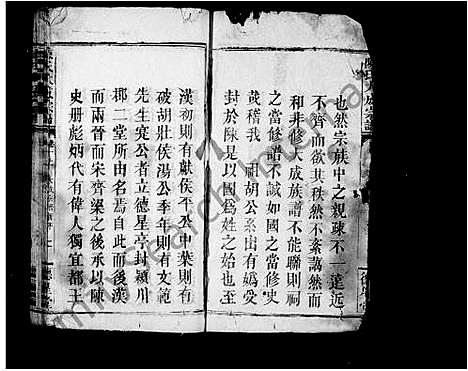 也然宗族中之親疎不一遠近
不齊而欲其秩然不紊藹然而
和非修大成族譜不能聯則祠
之當修譜不誠如國之當修史
哉稽我 祖胡公系由有媯受
封於陳是以國爲姓之始也至
漢初則有獻侯平及中葉則有
破胡壯侯湯公季年則有文範
先生寔公者立德星堂封潁川
郡二堂所由名焉自此而後漢
而兩晉而宋齊梁之後承以陳
史册彪炳代有偉人獨宜都王